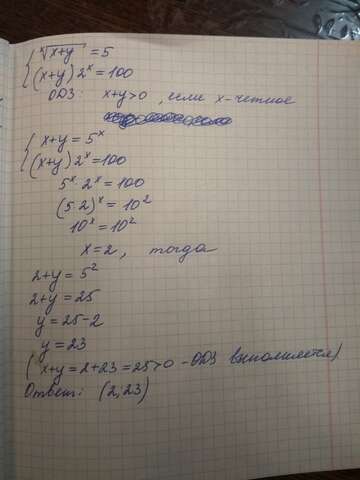 ˣ√x+y = 5
(x+y) 2ˣ = 100
ОДЗ: x+y>0, если x - четное
x+y = 5ˣ
(x+y) 2ˣ = 100
5ˣ · 2ˣ = 100
(5·2)ˣ = 10²
10ˣ = 10²
x = 2, тогда
2+y = 5²
2+y = 25
y = 25-2
y = 23
(x+y = 2+23 = 25>0 - ОДЗ выполняется)
Ответ: (2; 23)